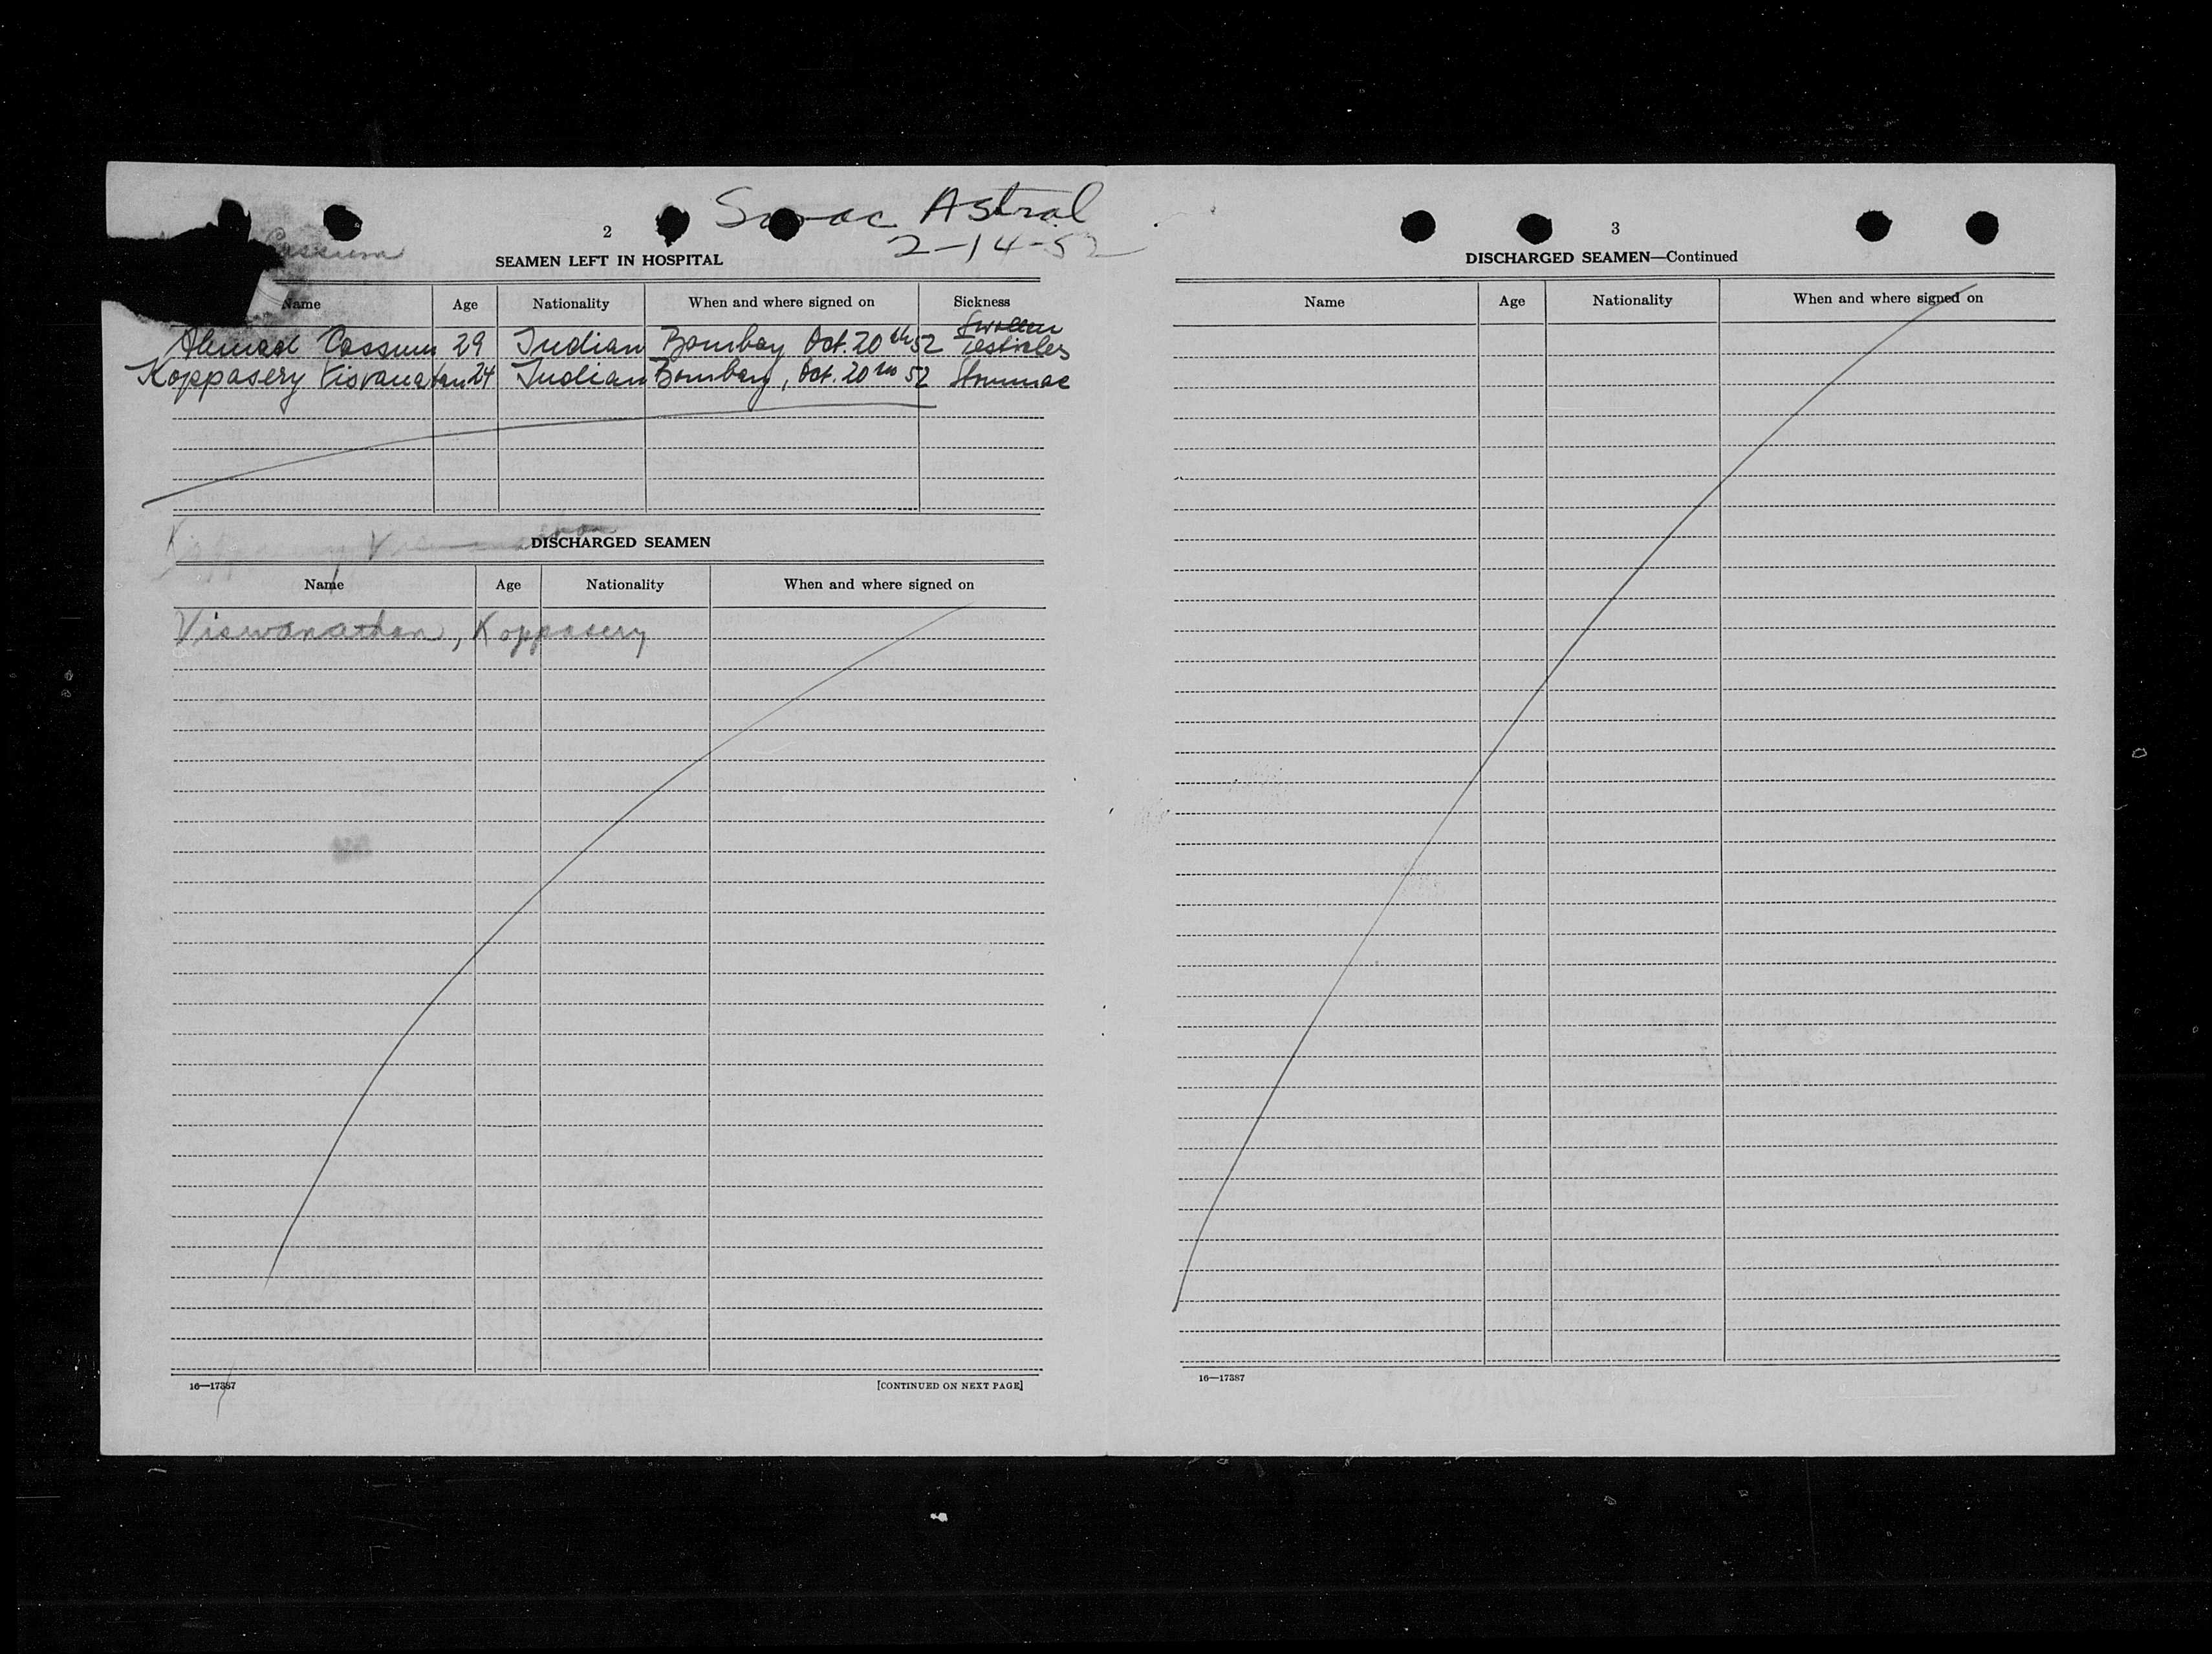 Astral
2-14-52
Cassum
2
SEAMEN LEFT IN HOSPITAL
Name Age Nationality When and where signed on Sickness
Ahmad Cassum 29 Indian Bombay Oct. 20th 52 Swollen Testicles
Koppasery Visvanatan 24 Indian Bombay, Oct. 20th 52 Stommac
Koppasery
DISCHARGED SEAMEN
Name Age Nationality When and where signed on
Viswanathan, Koppasery
16—17387
[CONTINUED ON NEXT PAGE]
3
DISCHARGED SEAMEN—Continued
Name Age Nationality When and where signed on
16—17387